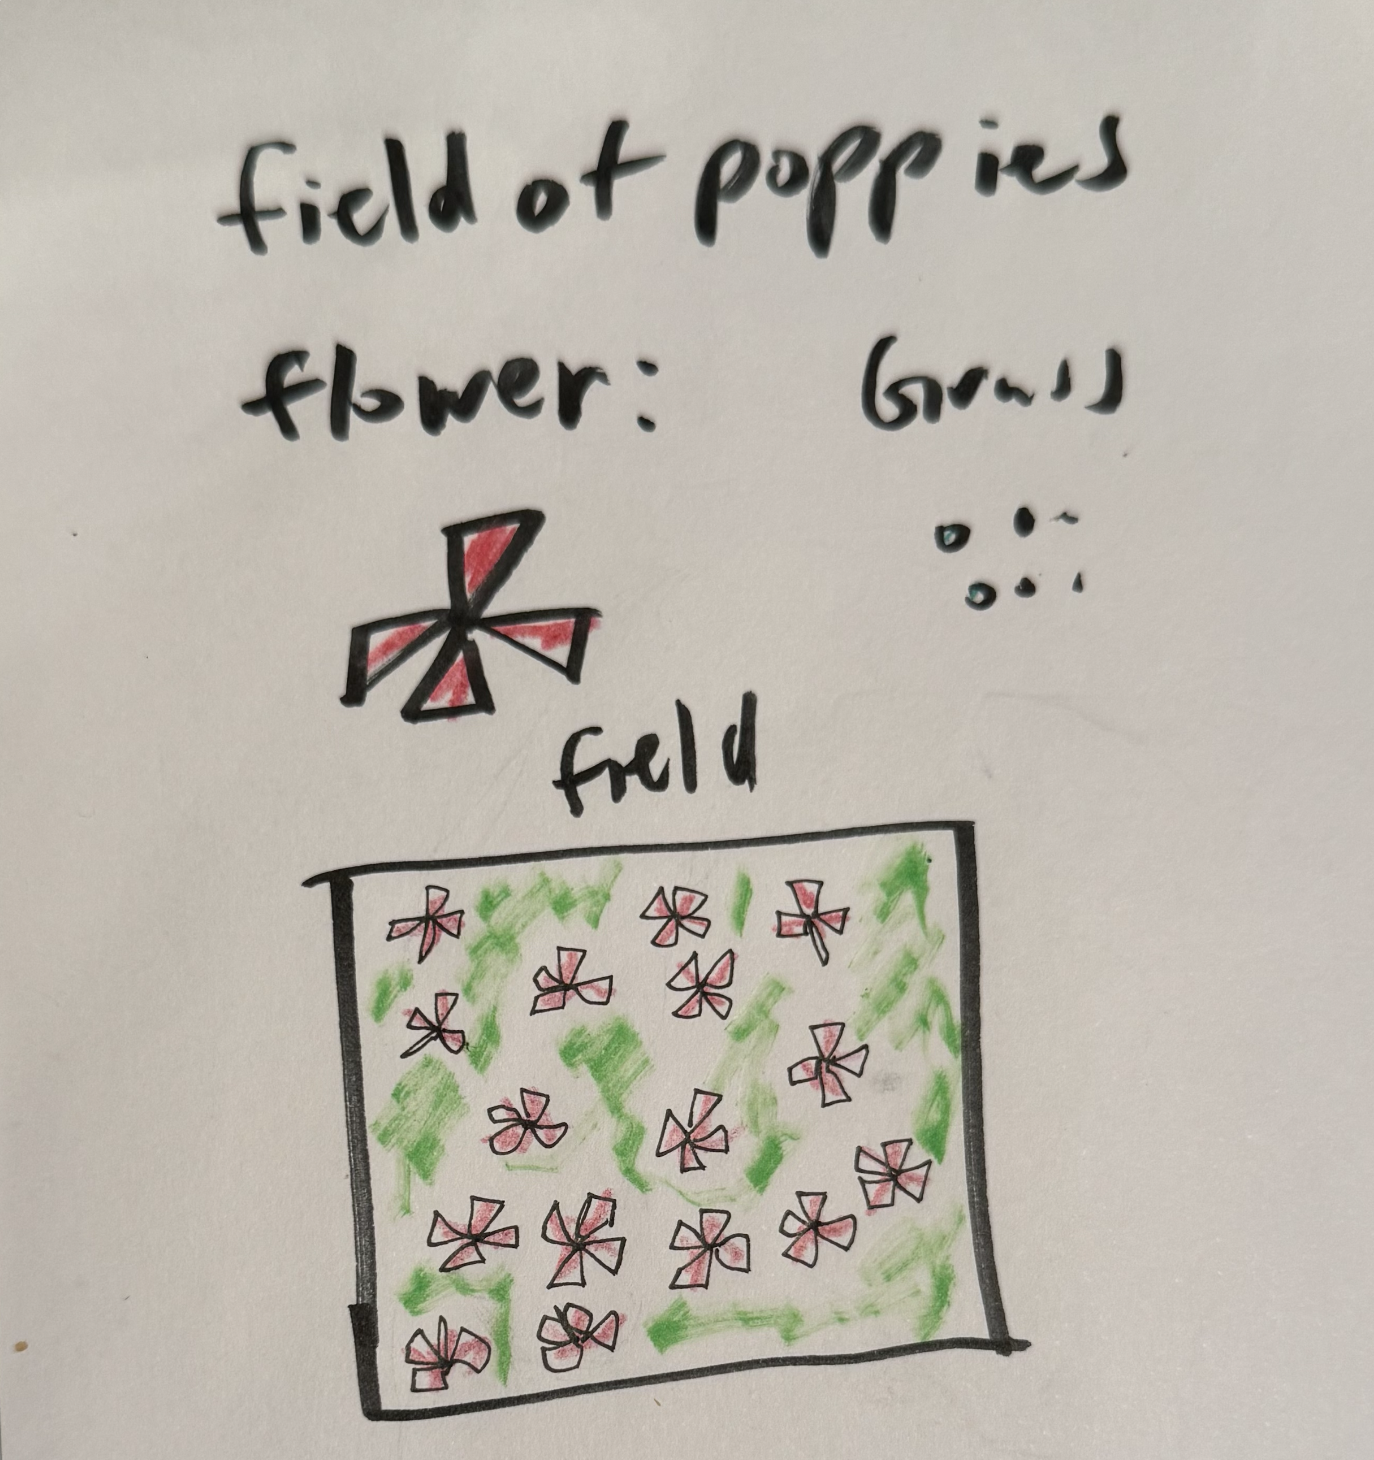 field of poppies
flower: Grass
field